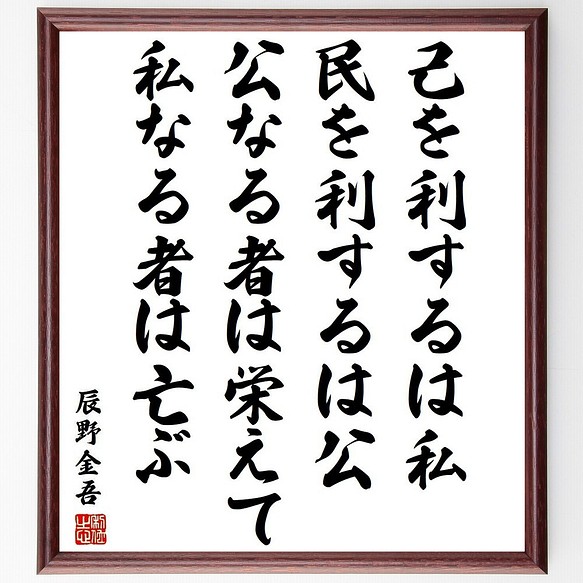 己を利するは私
民を利するは公
公なる者は栄えて
私なる者は亡ぶ
辰野金吾